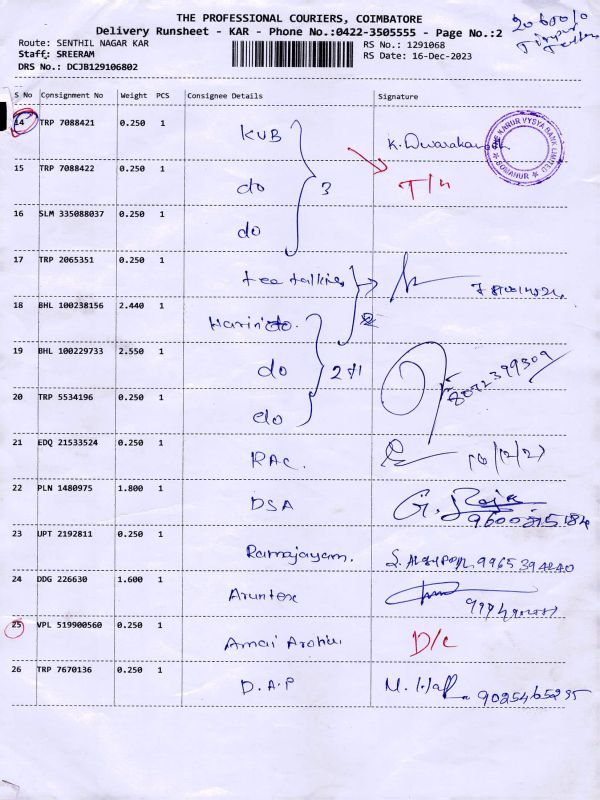 THE PROFESSIONAL COURIERS, COIMBATORE
Delivery Runsheet - KAR - Phone No.:0422-3505555 - Page No.:2
Route: SENTHIL NAGAR KAR
RS No.: 1291068
Staff: SREERAM
RS Date: 16-Dec-2023
DRS No.: DCJB129106802
S No Consignment No Weight PCS Consignee Details Signature
14 TRP 7088421 0.250 1 KVB K. Dwarakanath
THE KARUR VYSYA BANK LIMITED
15 TRP 7088422 0.250 1 do 3 T/n
16 SLM 335088037 0.250 1 do
17 TRP 2065351 0.250 1
18 BHL 100238156 2.440 1
19 BHL 100229733 2.550 1 do
20 TRP 5534196 0.250 1 do
21 EDQ 21533524 0.250 1 RAC.
22 PLN 1480975 1.800 1 DSA G. Raja
23 UPT 2192811 0.250 1 Ramajayam.
24 DDG 226630 1.600 1 Aruntex
25 VPL 519900560 0.250 1 D/C
26 TRP 7670136 0.250 1 D.A.P